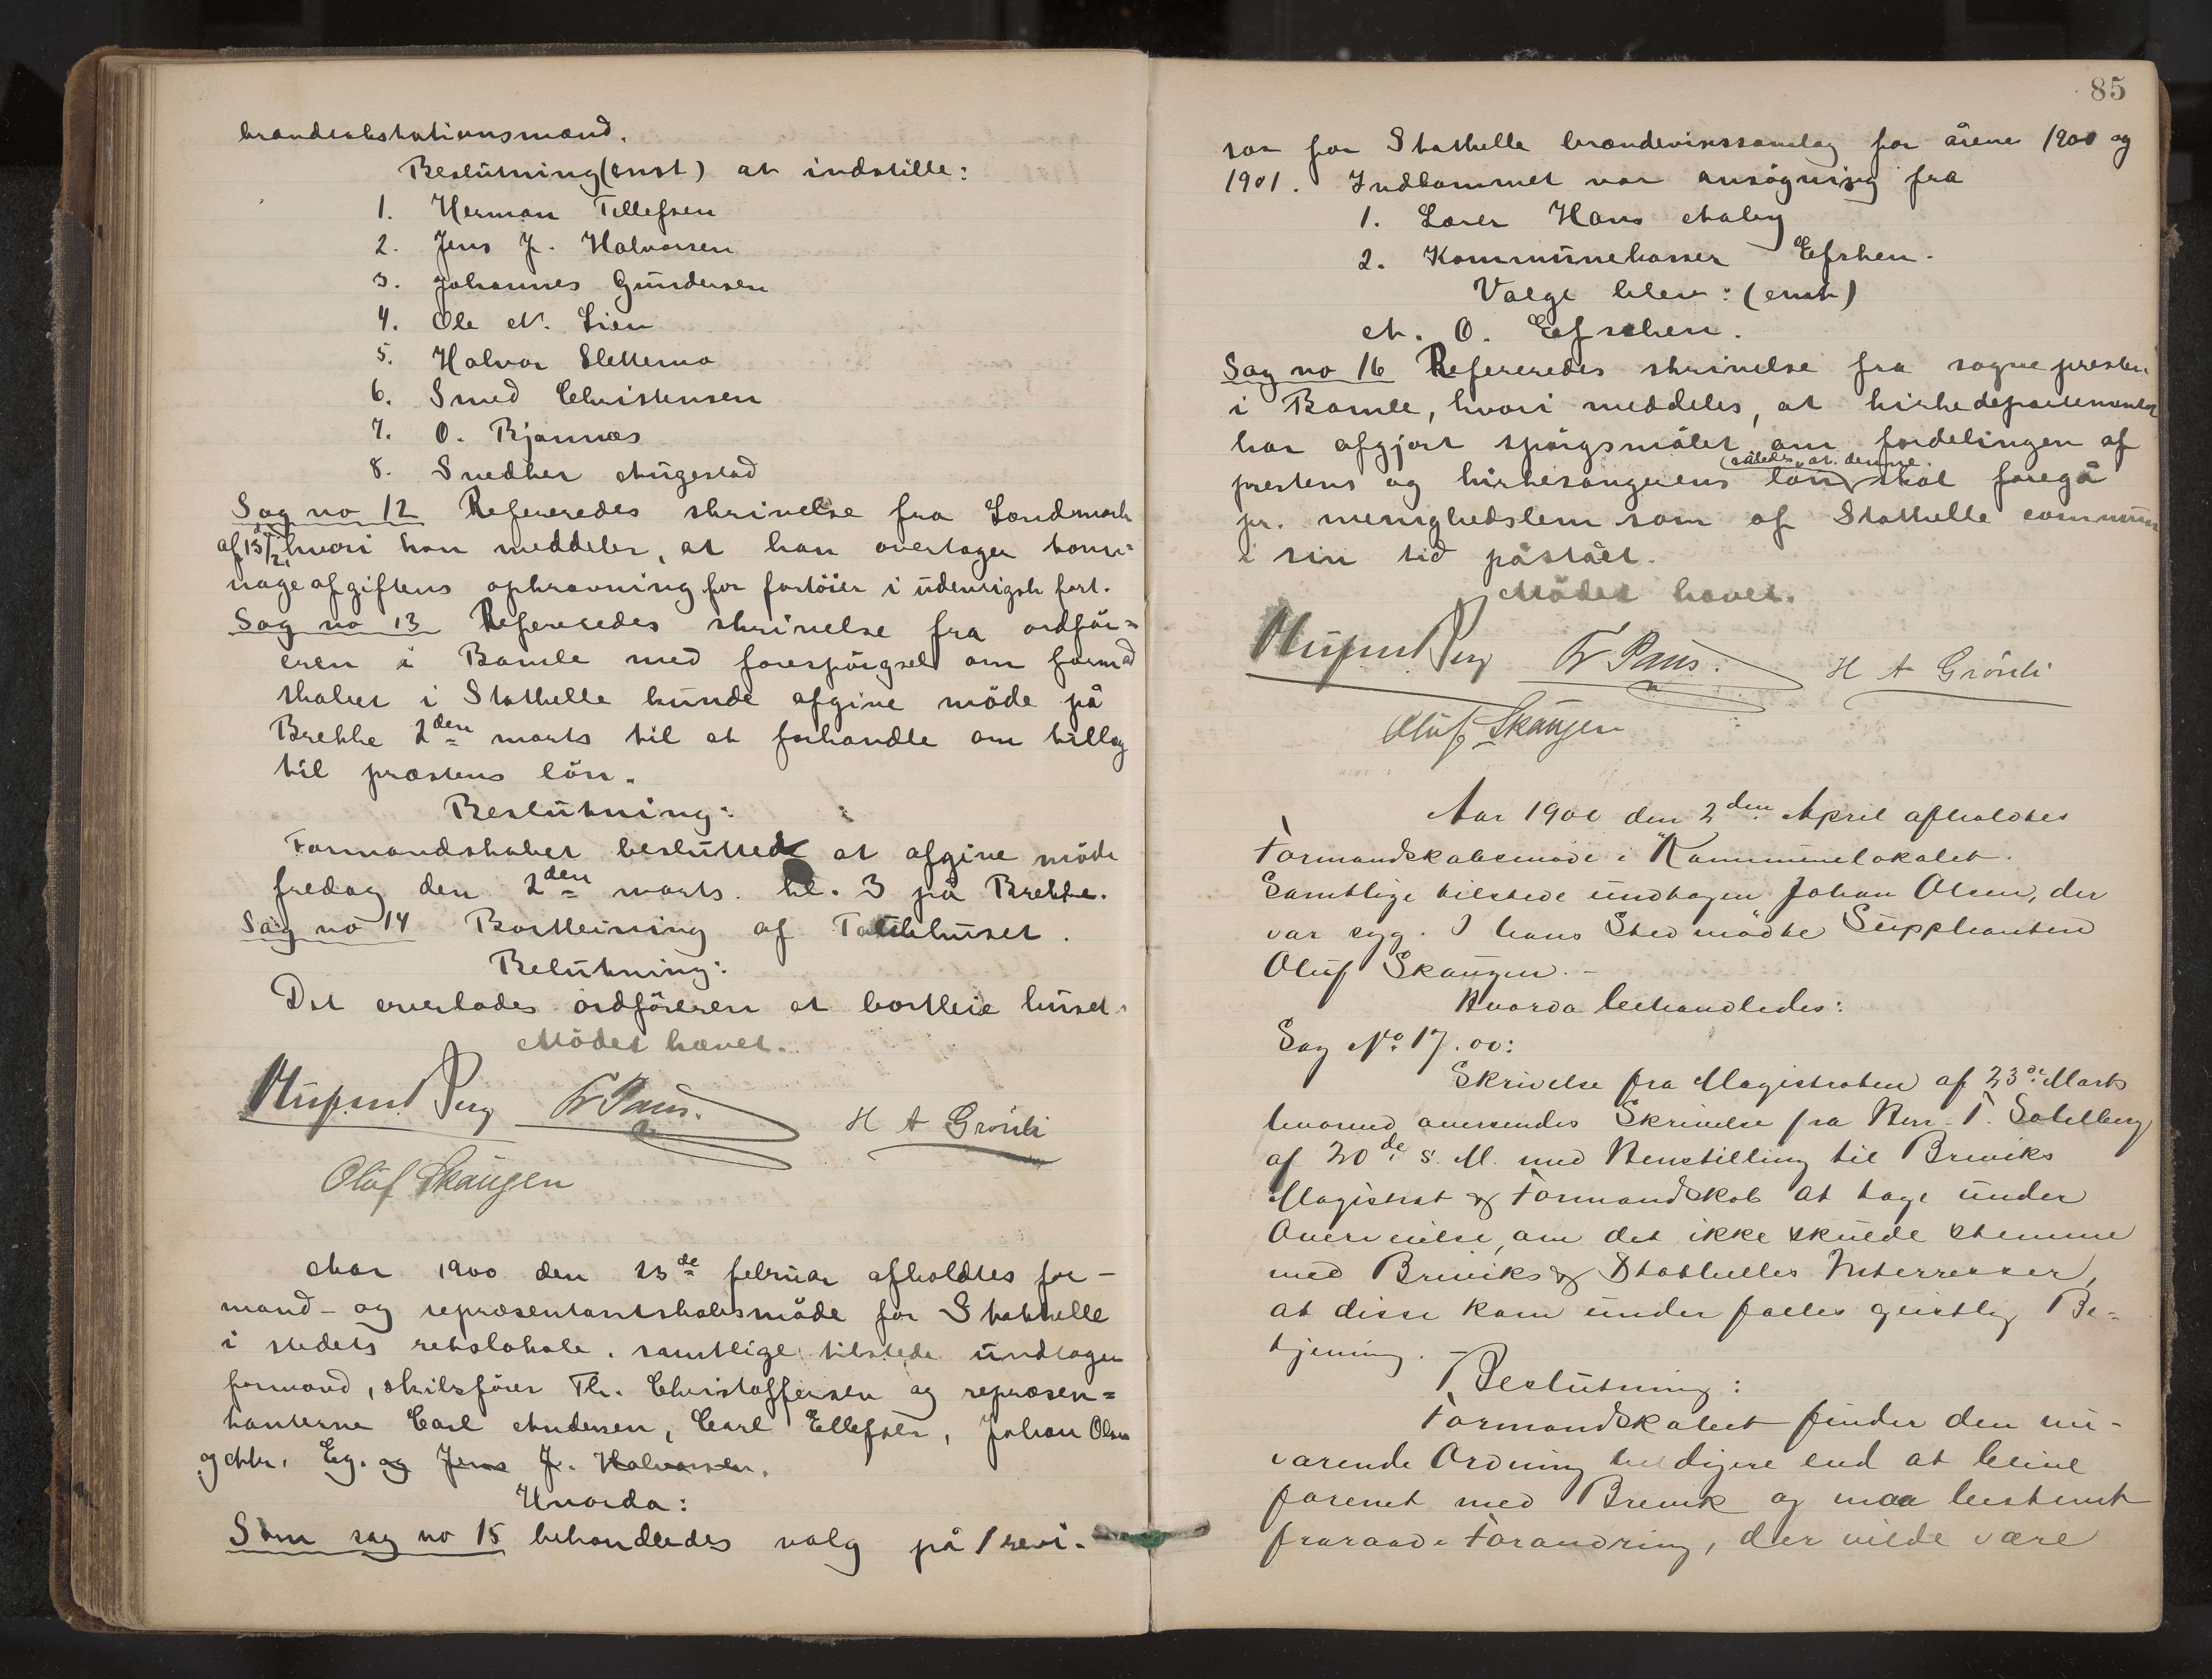 brandvabstationsmænd.
Beslutning (enst) at indstille:
1. Herman Tellefsen
2. Jens J. Halvorsen
3. Johannes Gundersen
4. Ole N. Lien
5. Halvor Sletterno
6. Smed Christensen
7. O. Bjønnæs
8. Snedker Augestad
Sag no 12 Refereredes skrivelse fra Landmark
af 13/2 hvori han meddeler, at han overtager ton-
nageafgiftens opkrævning for fartöier i udenrigsk fart.
Sag no 13 Refereredes skrivelse fra ordför=
eren i Bamle med forespörgsel om formd
skabet i Stathelle kunde afgive möde på
Brekke 2den marts til at forhandle om tillæg
til præstens lön.
Beslutning:
Formandskabet beslutted at afgive möde
fredag den 2den marts kl. 3 på Brekke.
Sag no 14 Bortleining af Toldhuset.
Belutning:
Det overlades ordföreren at bortleie huset.
Mödet hævet.
Fr Paus. H A Grönli
Oluf Skaugen
Aar 1900 den 23de februar afholdtes for-
mand- og repræsentantskabsmöde for Stathelle
i stedets retslokale. samtlige tilstede undtagen
formand, skibsfører Th. Christoffersen og repræsen=
tanterne Carl Andersen, Carl Ellefsen, Johan Olsen
og Chr. Eg. og Jens J. Halvorsen.
Hvorda:
Som sag no 15 behandledes valg på 1 revi-
85
sor for Stathelle brændevinssamlag for årene 1900 og
1901. Indkommet var ansögning fra
1. Lærer Hans Aaby
2. Kommunekasser Eschen.
Valgt blev: (enst)
A. O. Eschen.
Sag no 16 Refereredes skrivelse fra sognepresten
i Bamle, hvori meddeles, at kirkedepartementet
har afgjort spörgsmålet om fordelingen af
(således, at denne
prestens og kirkesangerens lön skal foregå
pr. menighedslem som af Stathelle commun
i sin tid påstået.
Mödet hævet.
Fr Paus. H A Grönli
Oluf Skaugen
Aar 1900 den 2den April afholdtes
Formandskabsmöde i Kommunelokalet.
Samtlige tilstede undtagen Johan Olsen, der
var syg. I hans Sted mödte Suppleanten
Oluf Skaugen. -
Hvorda behandledes:
Sag No 17.00:
Skrivelse fra Magistraten af 23de Marts
hvormed oversendes Skrivelse fra Herr T. Sahlberg
af 20de s. M. med Henstilling til Breviks
Magistrat & Formandskab at tage under
Overveielse, om det ikke skulde stemme
med Breviks & Stathelles Interresser,
at disse kom under fælles geistlig Be-
tjening. -
Beslutning:
Formandskabet finder den nu-
værende Ordning heldigere end at blive
forenet med Brevik og maa bestemt
fraraade Forandring, der vilde være